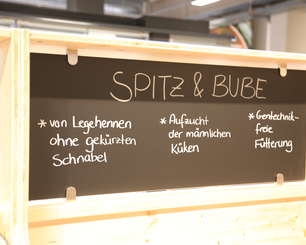 SPITZ & BUBE
* von Legehennen
ohne gekürzten
Schnabel
* Aufzucht
der männlichen
Küken
* Gentechnik-
freie
Fütterung